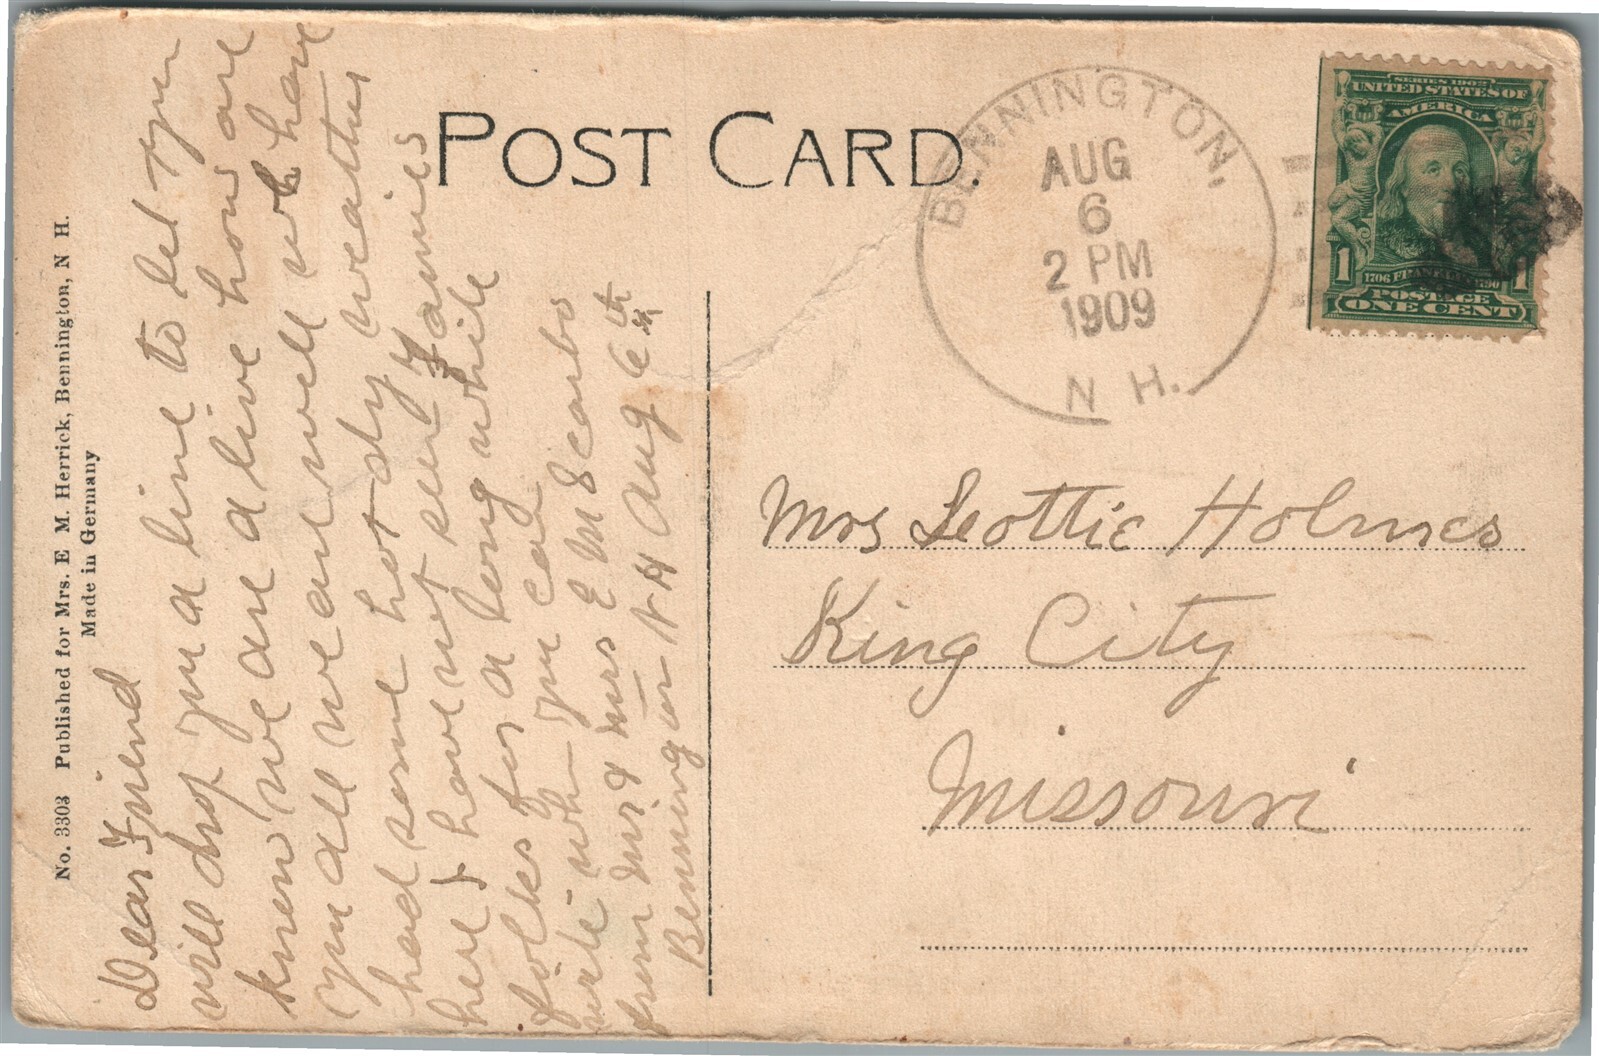 No. 3303 Published for Mrs. E M. Herrick, Bennington, N H.
Made in Germany
POST CARD.
BENNINGTON,
AUG
6
2 PM
1909
N H.
SERIES 1902
UNITED STATES OF
AMERICA
1 1
1706 FRANKLIN 1790
POSTAGE
ONE CENT
Dear Friend
will drop you a line to let you
know we are a live how are
you all we are well we have
had some hot dry weather
here I have not seen Famies
folkes for a long while
write when you can
from Mr & Mrs E M
Bennington N H Aug 6th
Mrs Leottie Holmes
King City
Missouri